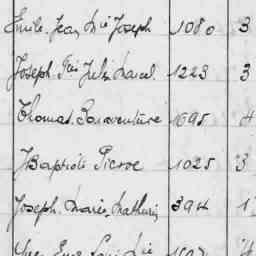 Emile Jean Mie Joseph 1080 3
Joseph Fois Julien Marcel 1223 3
Thomas Bonaventure 1695 4
JBaptiste Pierre 1025 3
Joseph Marie Mathurin 394 1
Yves Eug Louis Mie